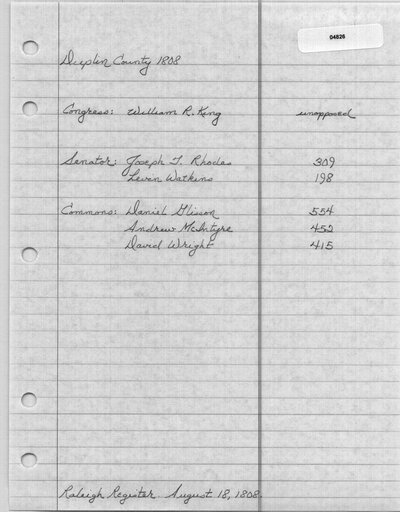 04826
Duplin County 1808
Congress: William R. King unopposed
Senator: Joseph T. Rhodes 309
Levin Watkins 198
Commons: Daniel Glisson 554
Andrew McIntyre 452
David Wright 415
Raleigh Register August 18, 1808.